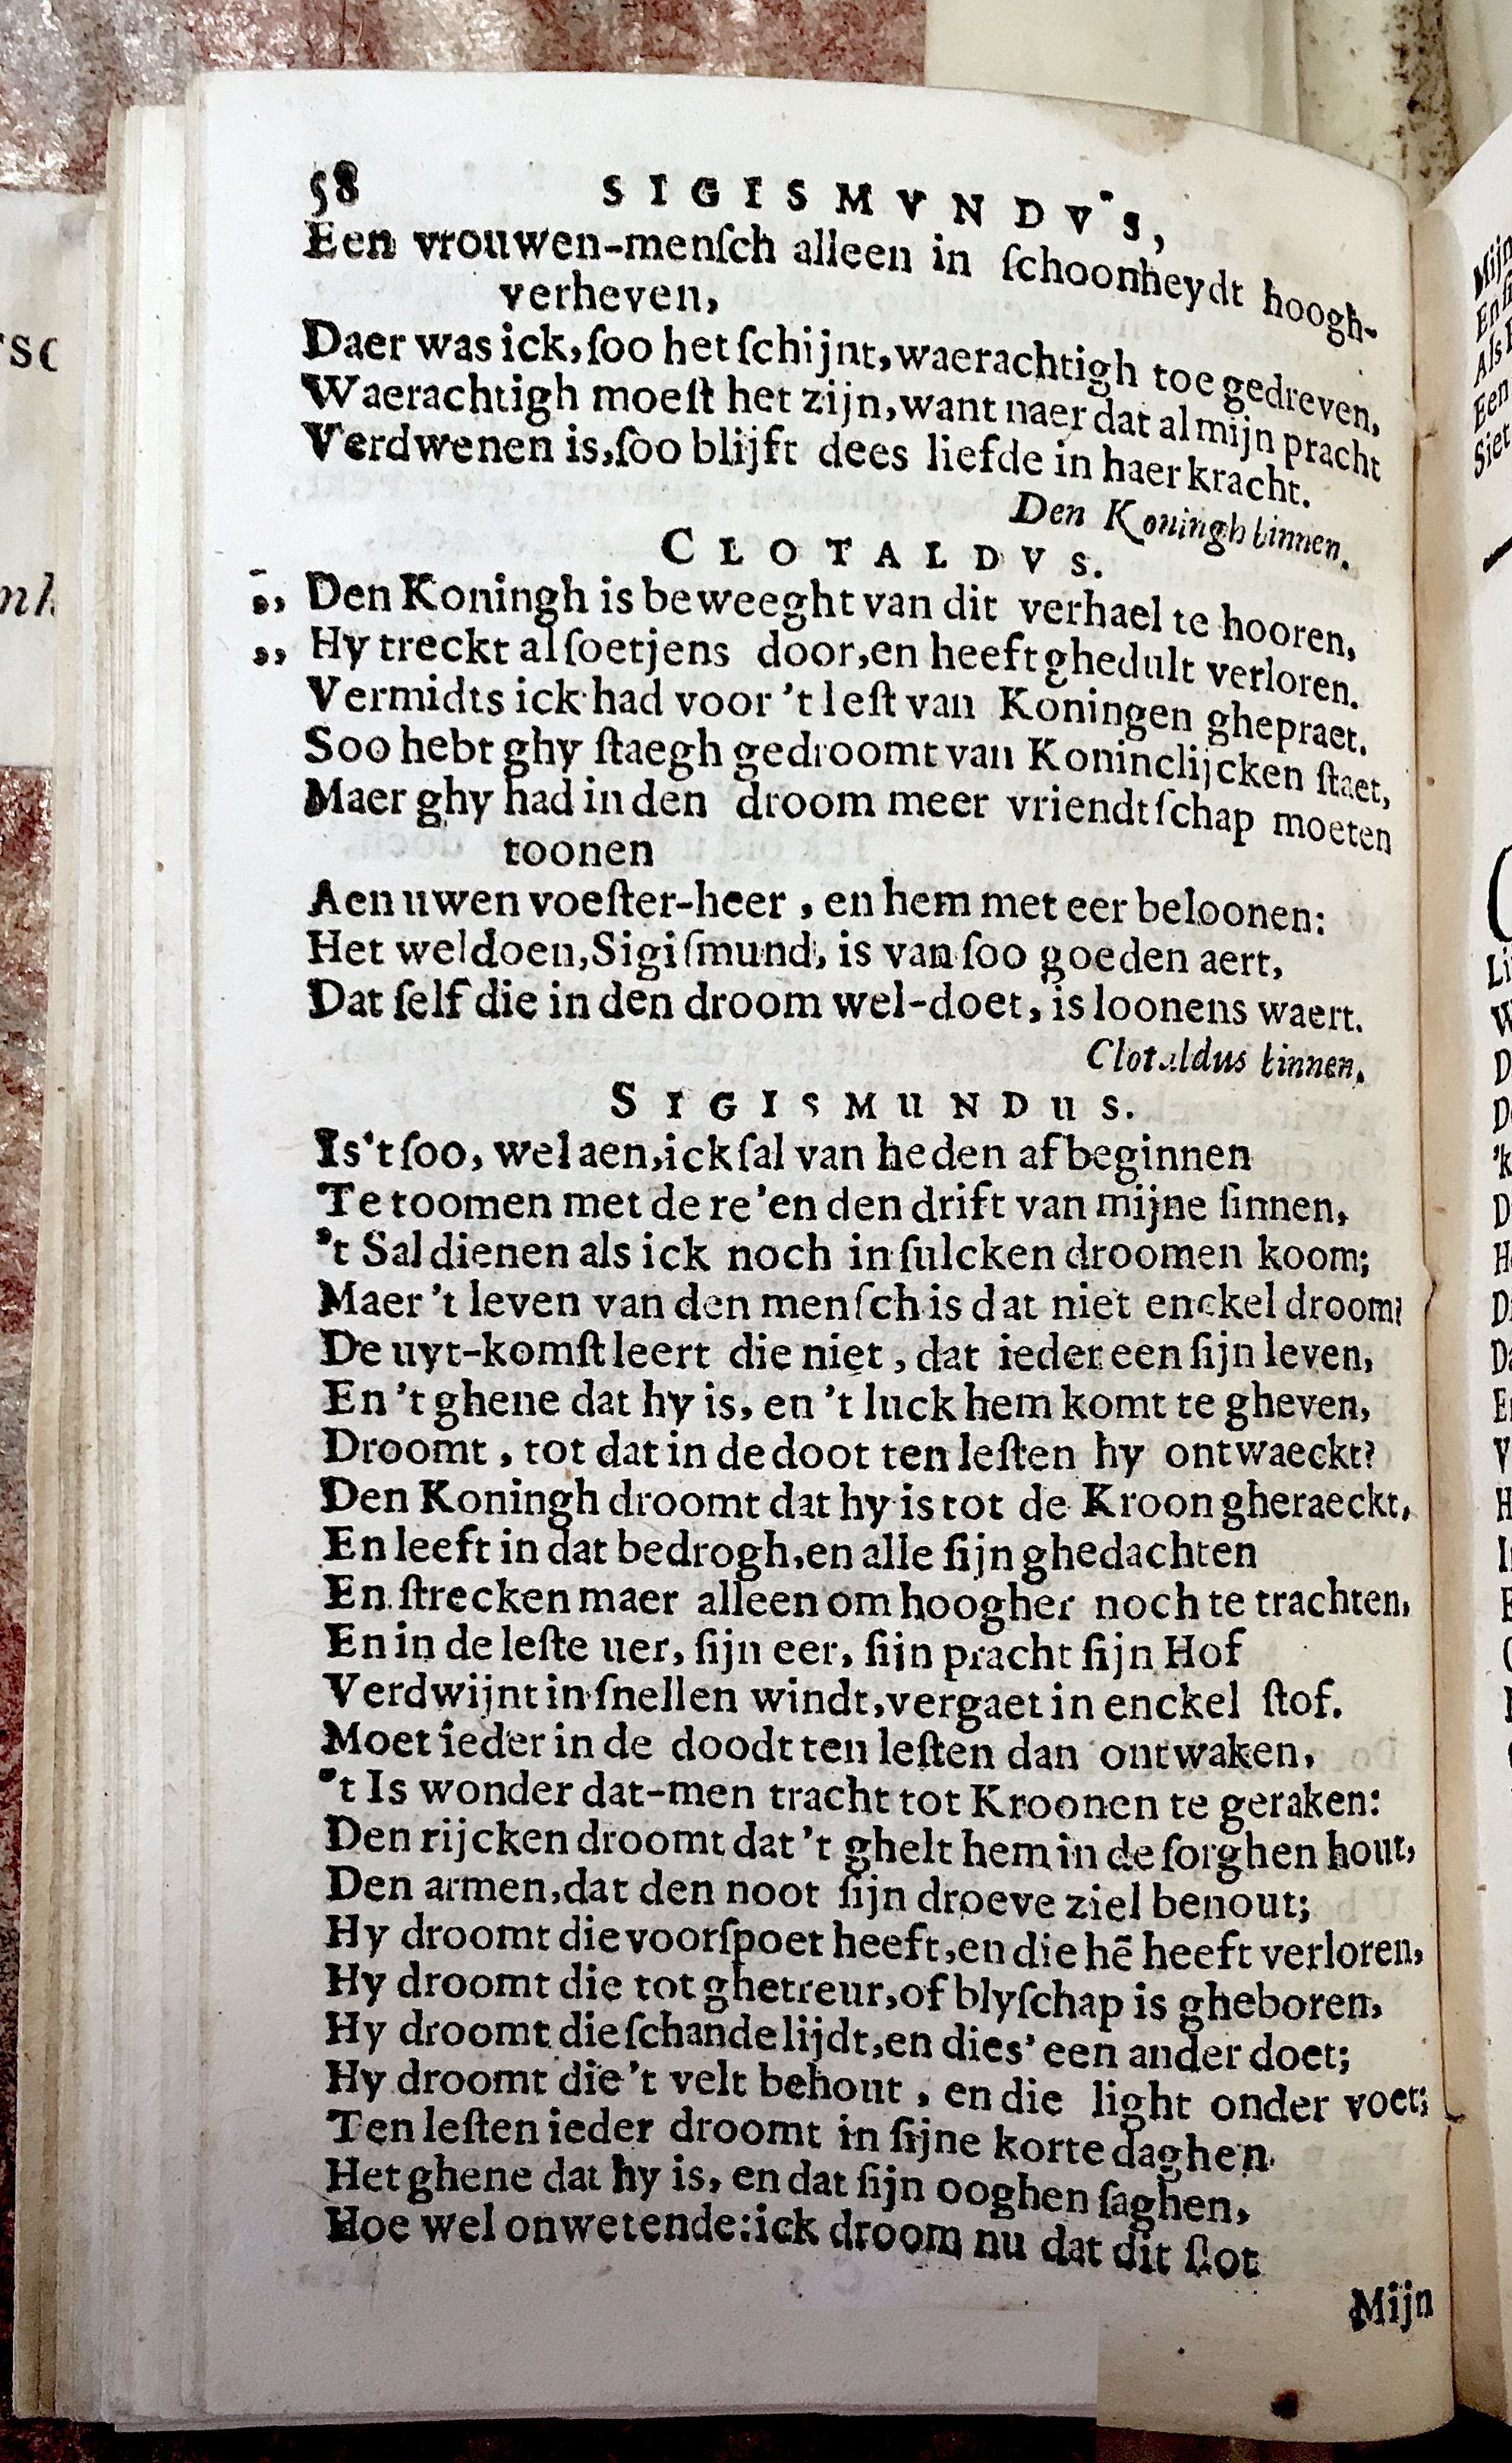 58 SIGISMVNDVS,
Een vrouwen-menſch alleen in ſchoonheydt hoogh-
verheven,
Daer was ick, ſoo het ſchijnt, waerachtigh toe gedreven,
Waerachtigh moeſt het zijn, want naer dat al mijn pracht
Verdwenen is, ſoo blijft dees liefde in haer kracht.
Den Koningh binnen.
CLOTALDVS.
,, Den Koningh is beweeght van dit verhael te hooren,
,, Hy treckt al ſoetjens door, en heeft ghedult verloren.
Vermidts ick had voor 't leſt van Koningen ghepraet.
Soo hebt ghy ſtaegh gedroomt van Koninclijcken ſtaet,
Maer ghy had in den droom meer vriendtſchap moeten
toonen
Aen uwen voeſter-heer, en hem met eer beloonen:
Het weldoen, Sigiſmund, is van ſoo goeden aert,
Dat ſelf die in den droom wel-doet, is loonens waert.
Clotaldus binnen,
SIGISMUNDUS.
Is't ſoo, wel aen, ick ſal van heden af beginnen
Te toomen met de re'en den drift van mijne ſinnen,
't Sal dienen als ick noch in ſulcken droomen koom;
Maer 't leven van den menſch is dat niet enckel droom?
De uyt-komſt leert die niet, dat ieder een ſijn leven,
En 't ghene dat hy is, en 't luck hem komt te gheven,
Droomt, tot dat in de doot ten leſten hy ontwaeckt?
Den Koningh droomt dat hy is tot de Kroon gheraeckt,
En leeft in dat bedrogh, en alle ſijn ghedachten
En ſtrecken maer alleen om hoogher noch te trachten,
En in de leſte uer, ſijn eer, ſijn pracht ſijn Hof
Verdwijnt in ſnellen windt, vergaet in enckel ſtof.
Moet ieder in de doodt ten leſten dan ontwaken,
't Is wonder dat-men tracht tot Kroonen te geraken:
Den rijcken droomt dat 't ghelt hem in de ſorghen hout,
Den armen, dat den noot ſijn droeve ziel benout;
Hy droomt die voorſpoet heeft, en die hē heeft verloren,
Hy droomt die tot ghetreur, of blyſchap is gheboren,
Hy droomt die ſchande lijdt, en dies' een ander doet;
Hy droomt die 't velt behout, en die light onder voet;
Ten leſten ieder droomt in ſijne korte daghen
Het ghene dat hy is, en dat ſijn ooghen ſaghen,
Hoe wel onwetende: ick droom nu dat dit ſlot
Mijn